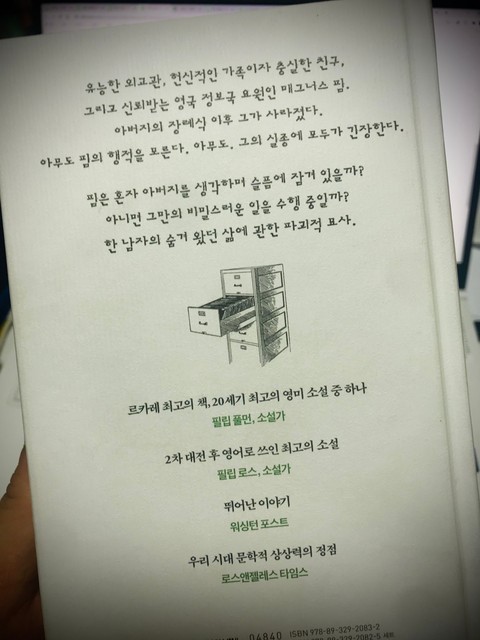 유능한 외교관, 헌신적인 가족이자 충실한 친구,
그리고 신뢰받는 영국 정보국 요원인 매그너스 핌.
아버지의 장례식 이후 그가 사라졌다.
아무도 핌의 행적을 모른다. 아무도. 그의 실종에 모두가 긴장한다.
핌은 혼자 아버지를 생각하며 슬픔에 잠겨 있을까?
아니면 그만의 비밀스러운 일을 수행 중일까?
한 남자의 숨겨 왔던 삶에 관한 파괴적 묘사.
르카레 최고의 책, 20세기 최고의 영미 소설 중 하나
필립 풀먼, 소설가
2차 대전 후 영어로 쓰인 최고의 소설
필립 로스, 소설가
뛰어난 이야기
워싱턴 포스트
우리 시대 문학적 상상력의 정점
로스앤젤레스 타임스
04840 ISBN 978-89-329-2083-2
978-89-329-2082-5 세트